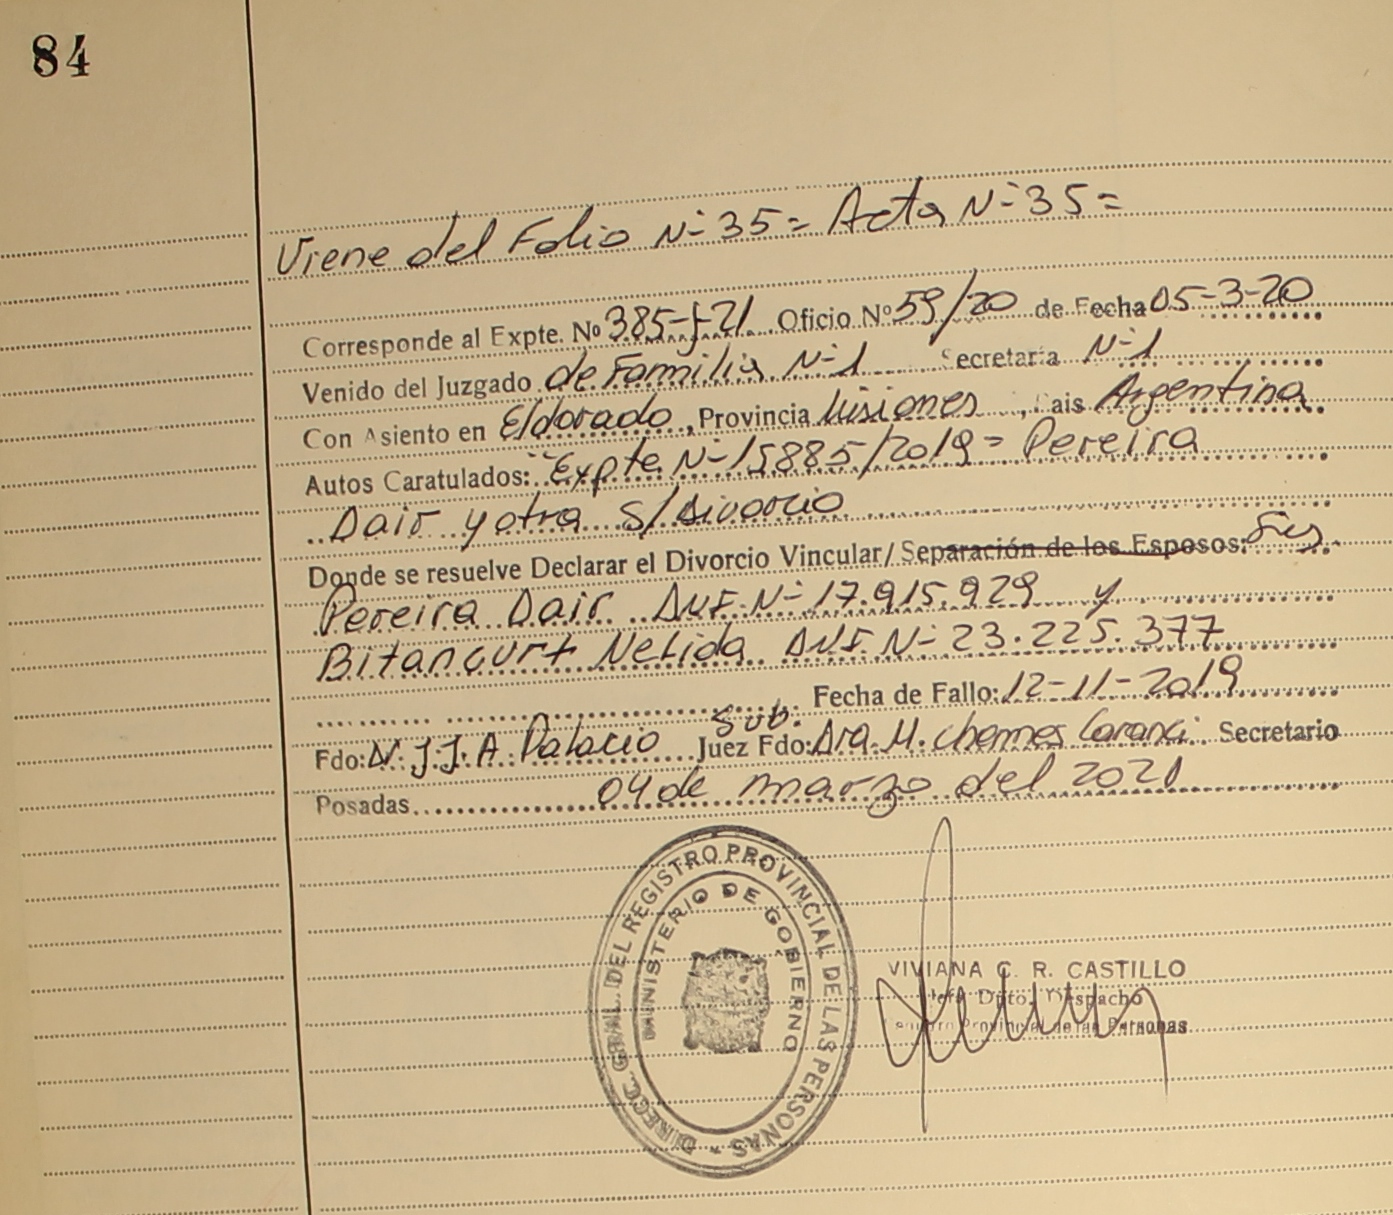 84
Viene del Folio Nº 35= Acta Nº 35=
Corresponde al Expte. Nº 385-J-21 Oficio Nº 59/20 de Fecha 05-3-20
Venido del Juzgado de Familia Nº 1 Secretaría Nº 1
Con Asiento en Eldorado, Provincia Misiones, Pais Argentina
Autos Caratulados: "Expte Nº 15885/2019= Pereira
Dair y otra S/Divorcio
Donde se resuelve Declarar el Divorcio Vincular/Separación de los Esposos:
Pereira Dair DNI Nº 17.915.929 y
Bitancurt Nelida DNI Nº 23.225.377
Fecha de Fallo: 12-11-2019
Fdo: J.J.A. Palacio Sub. Juez Fdo: Dra. M. Chemes Secretario
Posadas 04 de marzo del 2021
DIRECC. GRAL. DEL REGISTRO PROVINCIAL DE LAS PERSONAS
MINISTERIO DE GOBIERNO
VIVIANA C. R. CASTILLO
Jefe Dpto. Despacho
Registro Provincial de las Personas